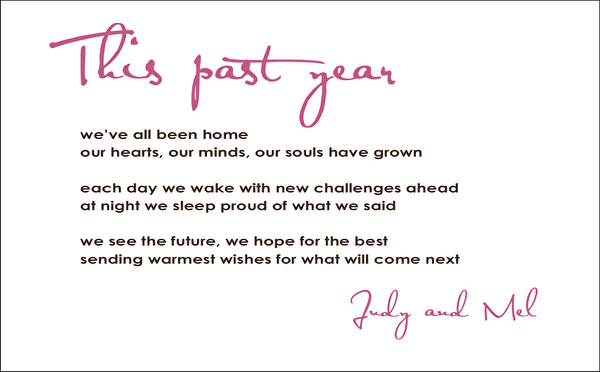 This past year
we've all been home
our hearts, our minds, our souls have grown
each day we wake with new challenges ahead
at night we sleep proud of what we said
we see the future, we hope for the best
sending warmest wishes for what will come next
Judy and Mel